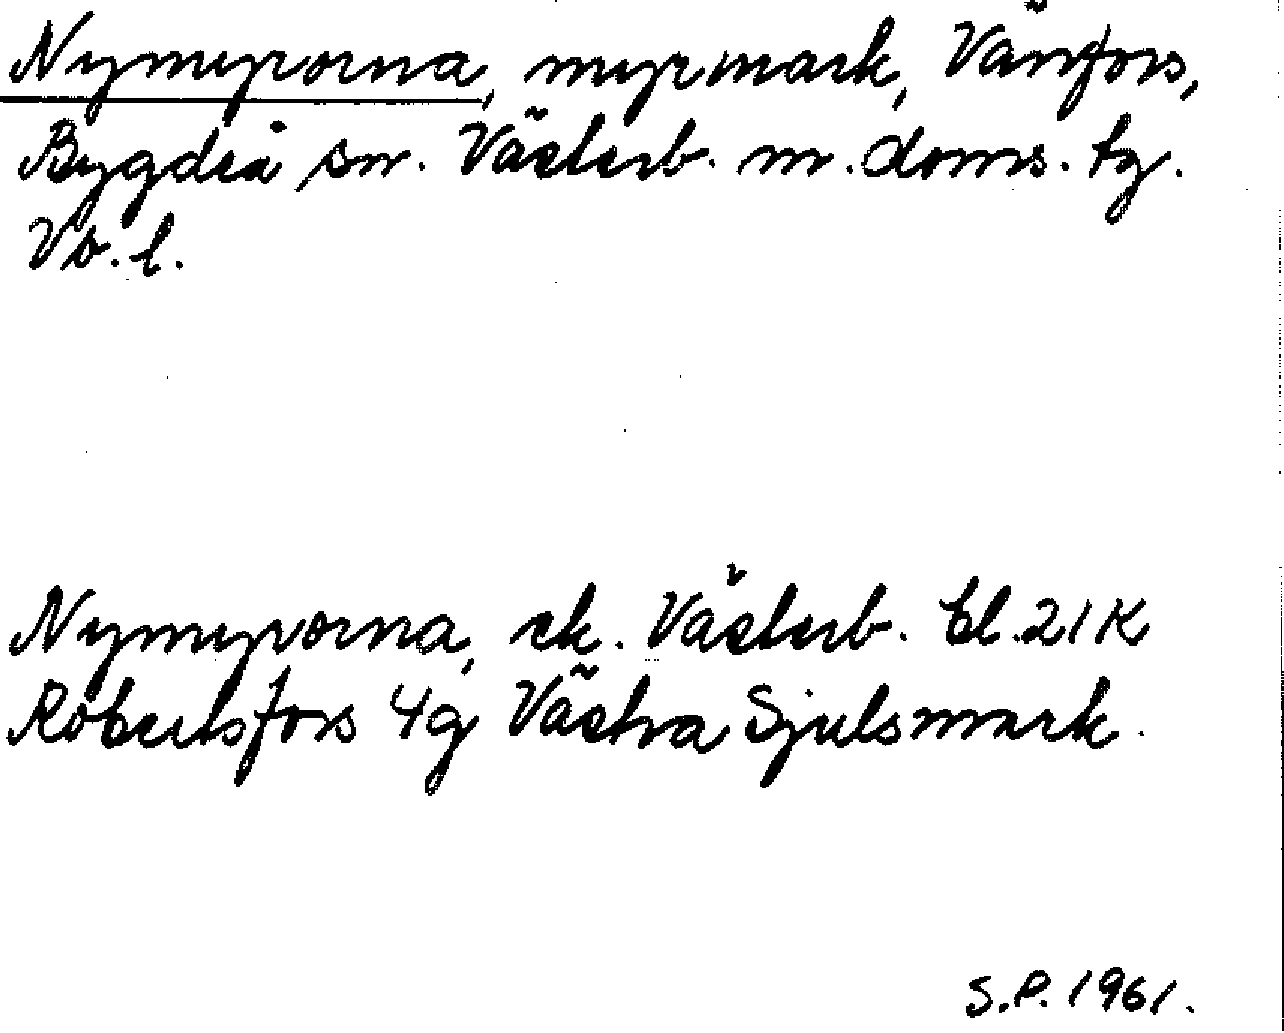 Nymyrorna, myrmark, Vänfors,
Bygdeå sn. Västerb. m. doms. tg.
Vb. l.
Nymyrorna, ek. Västerb. bl. 21 K
Robertsfors 4g Västra Sjulsmark.
S.P. 1961.